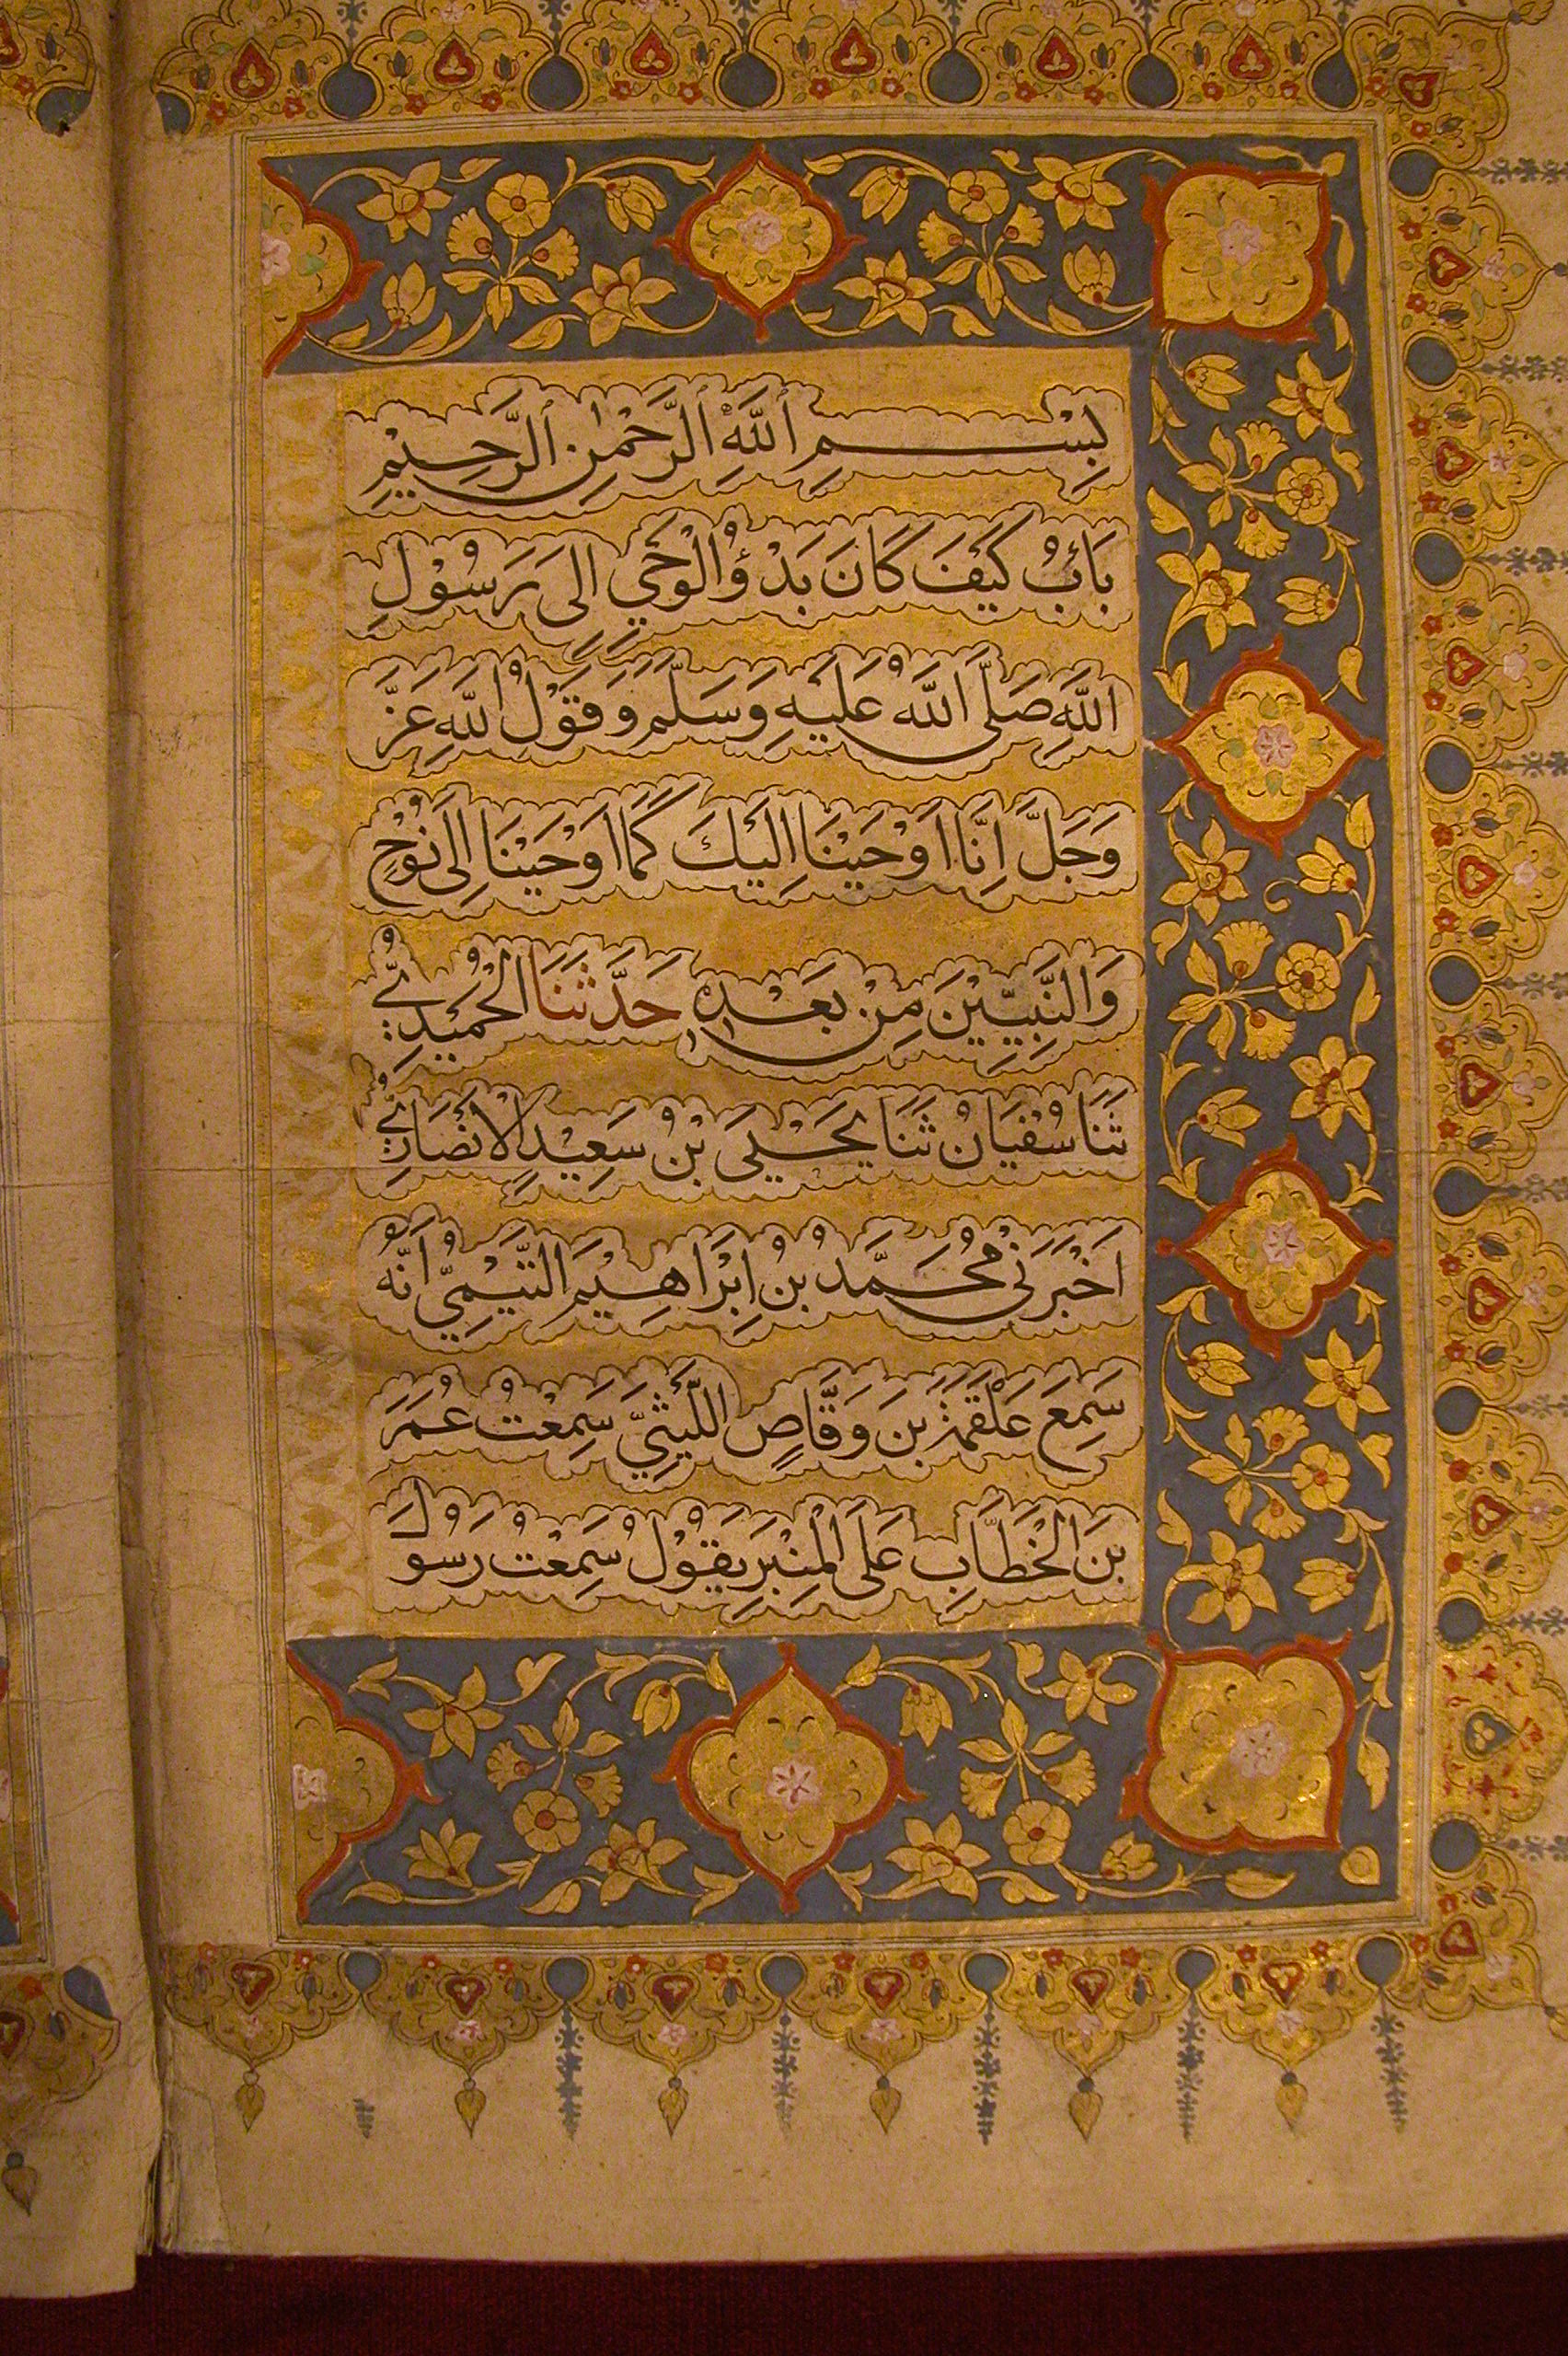 بِسْمِ ٱللَّهِ ٱلرَّحْمٰنِ ٱلرَّحِيْمِ
بَابُ كَيْفَ كَانَ بَدْؤُ الْوَحْيِ اِلىٰ رَسُوْلِ
اللَّهِ صَلَّى اللَّهُ عَلَيْهِ وَسَلَّمَ وَقَوْلُ اللَّهِ عَزَّ
وَجَلَّ اِنَّا اَوْحَيْنَا اِلَيْكَ كَمَا اَوْحَيْنَا اِلَى نُوْحٍ
وَالنَّبِيِّيْنَ مِنْ بَعْدِهٖ حَدَّثَنَا الْحُمَيْدِيُّ
ثَنَا سُفْيَانُ ثَنَا يَحْيَى بْنُ سَعِيْدٍ الْاَنْصَارِيُّ
اَخْبَرَنِيْ مُحَمَّدُ بْنُ اِبْرَاهِيْمَ التَّيْمِيُّ اَنَّهُ
سَمِعَ عَلْقَمَةَ بْنَ وَقَّاصٍ اللَّيْثِيَّ سَمِعْتُ عُمَرَ
بْنَ الْخَطَّابِ عَلَى الْمِنْبَرِ يَقُوْلُ سَمِعْتُ رَسُوْلَ